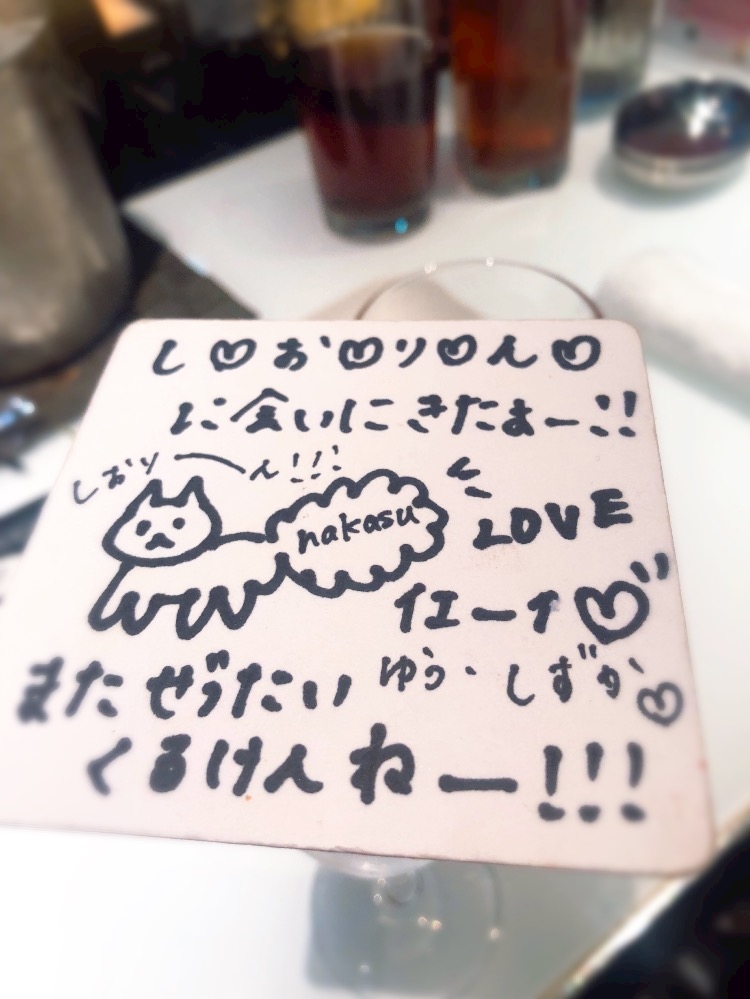 し♡お♡り♡ん♡
に会いにきたよー!!
しおりーん!!!
nakasu
LOVE
イエーイ♡
ゆう・しずか♡
またぜったい
くるけんねー!!!